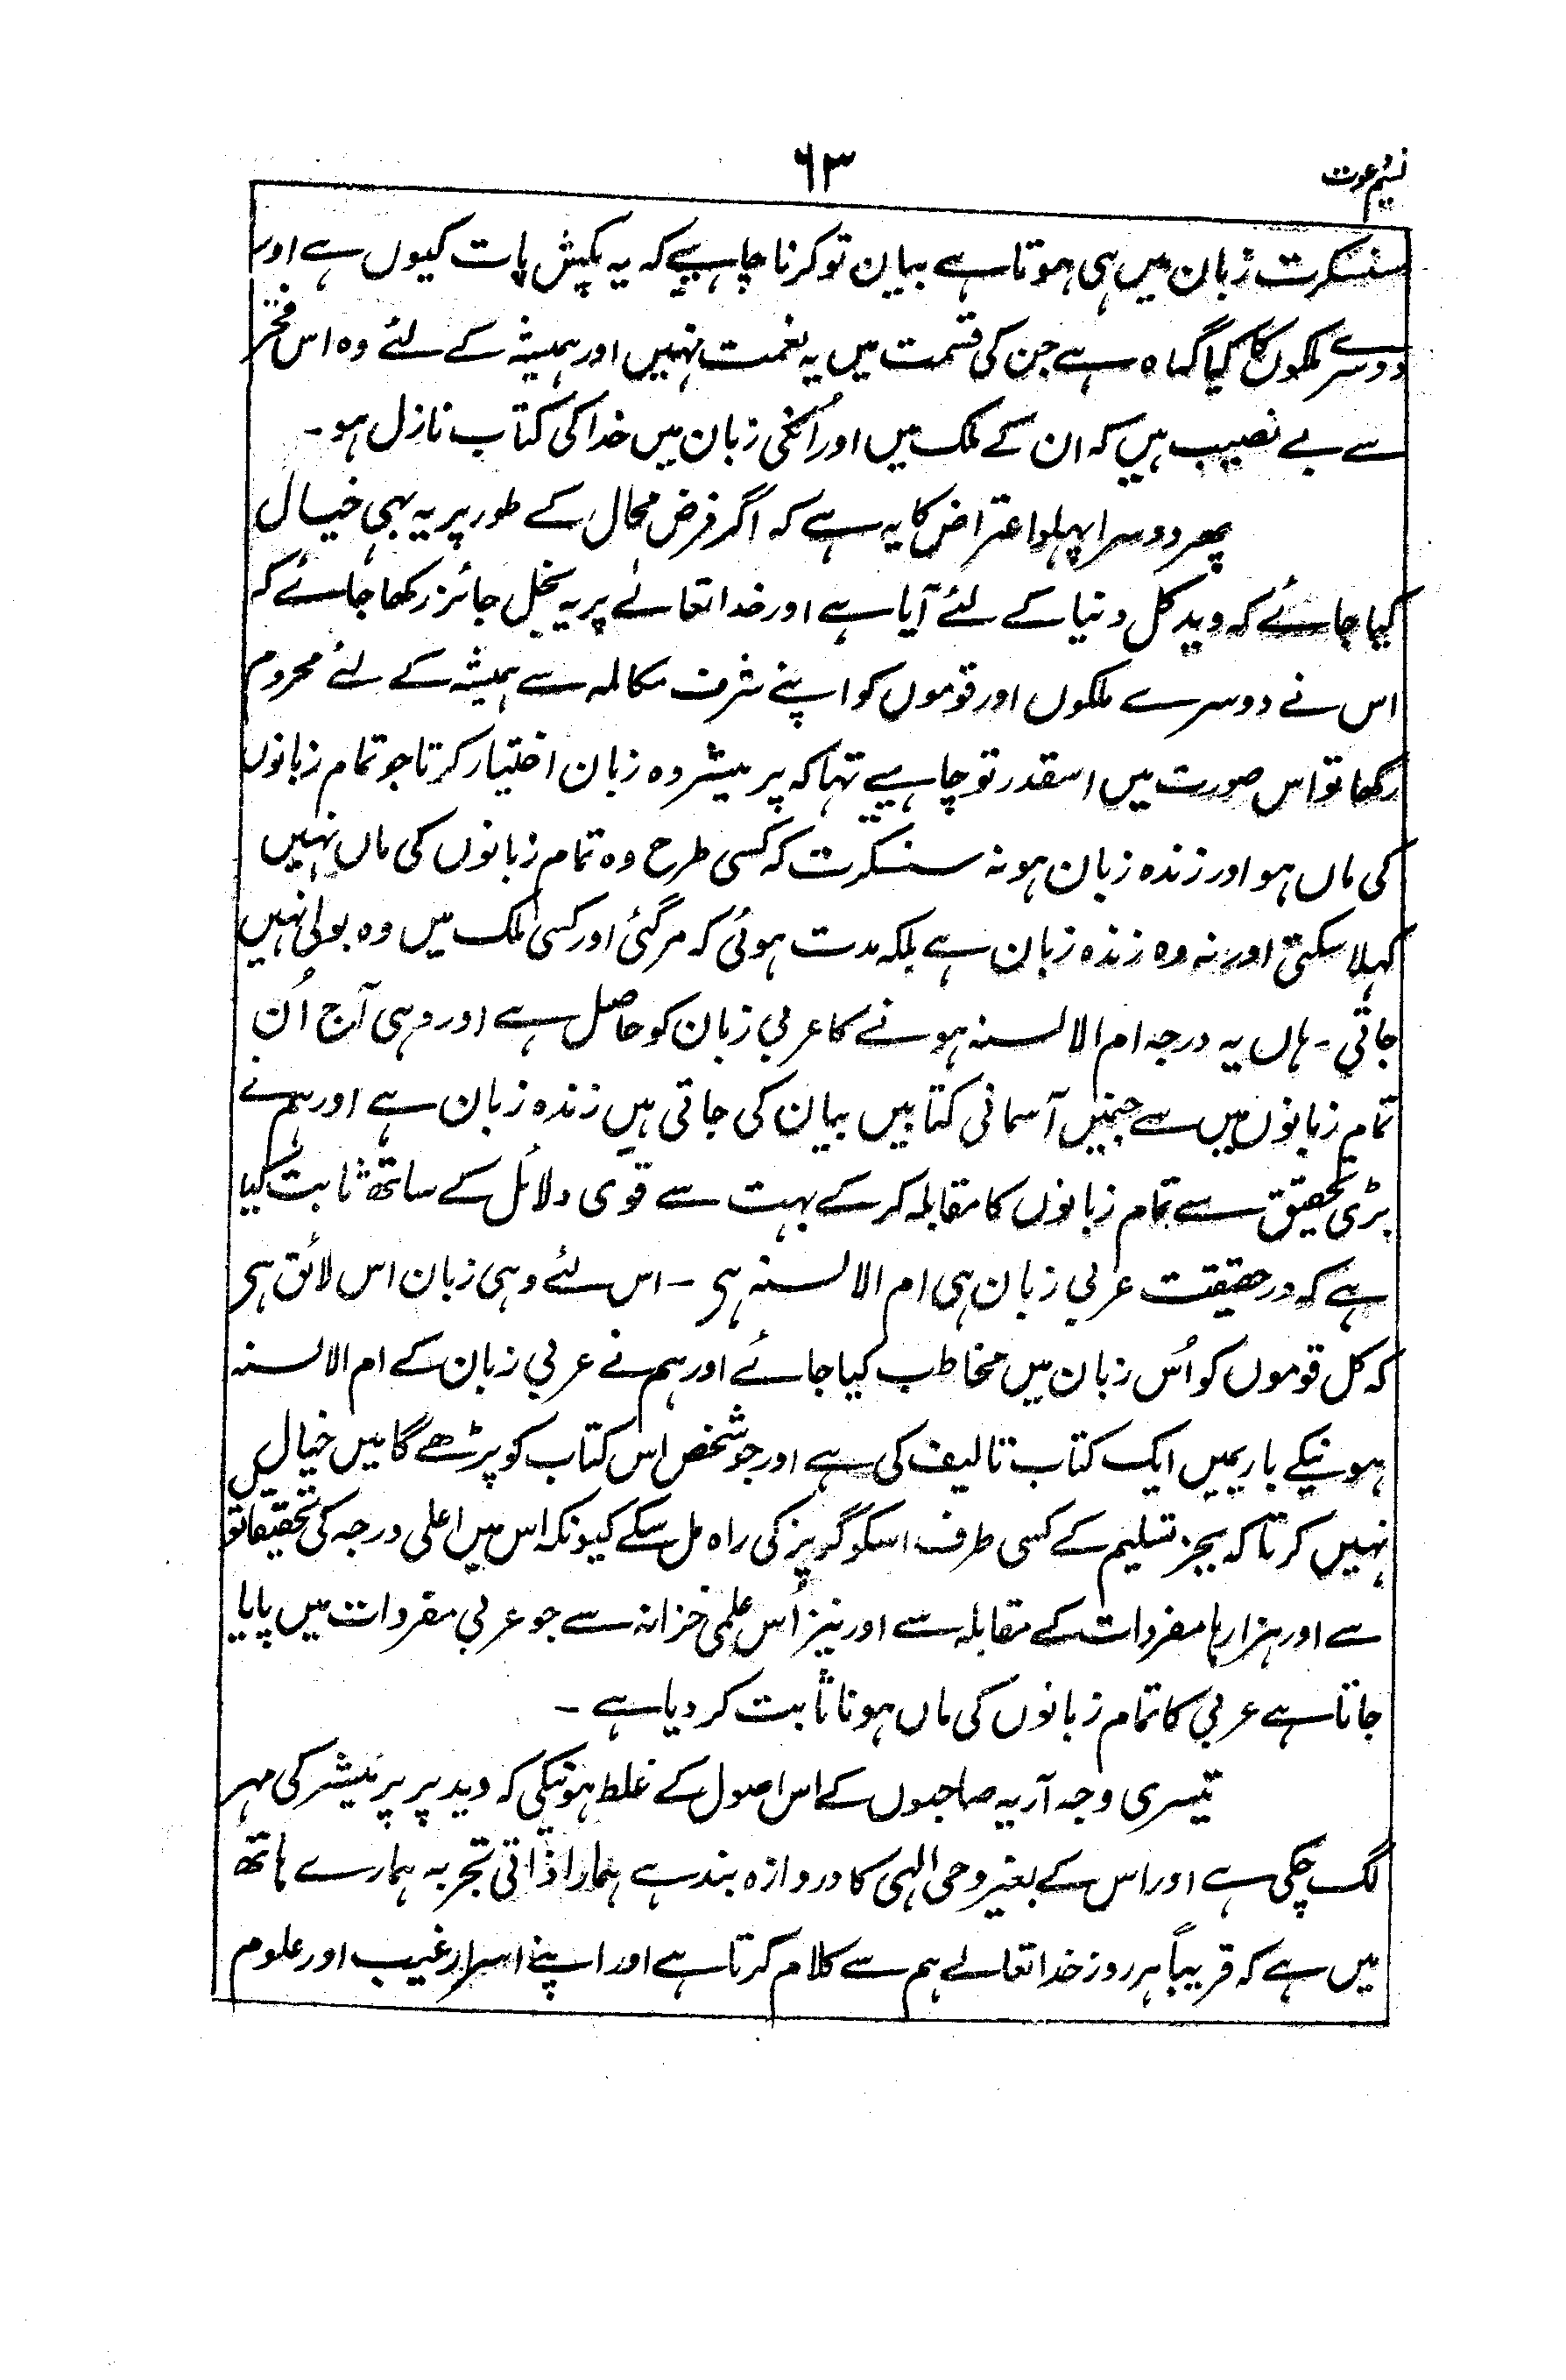 نسیم دعوت
۶۳
سنسکرت زبان میں ہی ہوتا ہے بیان تو کرنا چاہیے کہ یہ پکش پات کیوں ہے اور
دوسرے ملکوں کا کیا گناہ ہے جن کی قسمت میں یہ نعمت نہیں اور ہمیشہ کے لئے وہ اس فخر
سے بے نصیب ہیں کہ ان کے ملک میں اور اُنکی زبان میں خدا کی کتاب نازل ہو۔
پھر دوسرا پہلو اعتراض کا یہ ہے کہ اگر فرض محال کے طور پر یہ بہی خیال
کیا جائے کہ وید کل دنیا کے لئے آیا ہے اور خدا تعالےٰ پر یہ بخل جائز رکھا جائے کہ
اس نے دوسرے ملکوں اور قوموں کو اپنے شرف مکالمہ سے ہمیشہ کے لئے محروم
رکھا تو اس صورت میں اسقدر تو چاہیے تہا کہ پرمیشر وہ زبان اختیار کرتا جو تمام زبانوں
کی ماں ہو اور زندہ زبان ہو نہ سنسکرت کہ کسی طرح وہ تمام زبانوں کی ماں نہیں
کہلا سکتی اور نہ وہ زندہ زبان ہے بلکہ مدت ہوئی کہ مر گئی اور کسی ملک میں وہ بولی نہیں
جاتی۔ ہاں یہ درجہ ام الالسنہ ہونے کا عربی زبان کو حاصل ہے اور وہی آج اُن
تمام زبانوں میں سے جنمیں آسمانی کتابیں بیان کی جاتی ہیں زندہ زبان ہے اور ہم نے
بڑی تحقیق سے تمام زبانوں کا مقابلہ کر کے بہت سے قوی دلائل کے ساتھ ثابت کیا
ہے کہ درحقیقت عربی زبان ہی ام الالسنہ ہی ۔ اس لئے وہی زبان اس لائق ہی
کہ کل قوموں کو اُس زبان میں مخاطب کیا جائے اور ہم نے عربی زبان کے ام الالسنہ
ہونیکے باریمیں ایک کتاب تالیف کی ہے اور جو شخص اس کتاب کو پڑھے گا میں خیال
نہیں کرتا کہ بجز تسلیم کے کسی طرف اسکو گریز کی راہ مل سکے کیونکہ اس میں اعلی درجہ کی تحقیقاتوں
سے اور ہزارہا مفردات کے مقابلہ سے اور نیز اُس علمی خزانہ سے جو عربی مفردات میں پایا
جاتا ہے عربی کا تمام زبانوں کی ماں ہونا ثابت کر دیا ہے ۔
تیسری وجہ آریہ صاحبوں کے اس اصول کے غلط ہونیکی کہ وید پر پرمیشر کی مہر
لگ چکی ہے اور اس کے بغیر وحی الہی کا دروازہ بند ہے ہمارا ذاتی تجربہ ہمارے ہاتھ
میں ہے کہ قریباً ہر روز خدا تعالے ہم سے کلام کرتا ہے اور اپنے اسرار غیب اور علوم